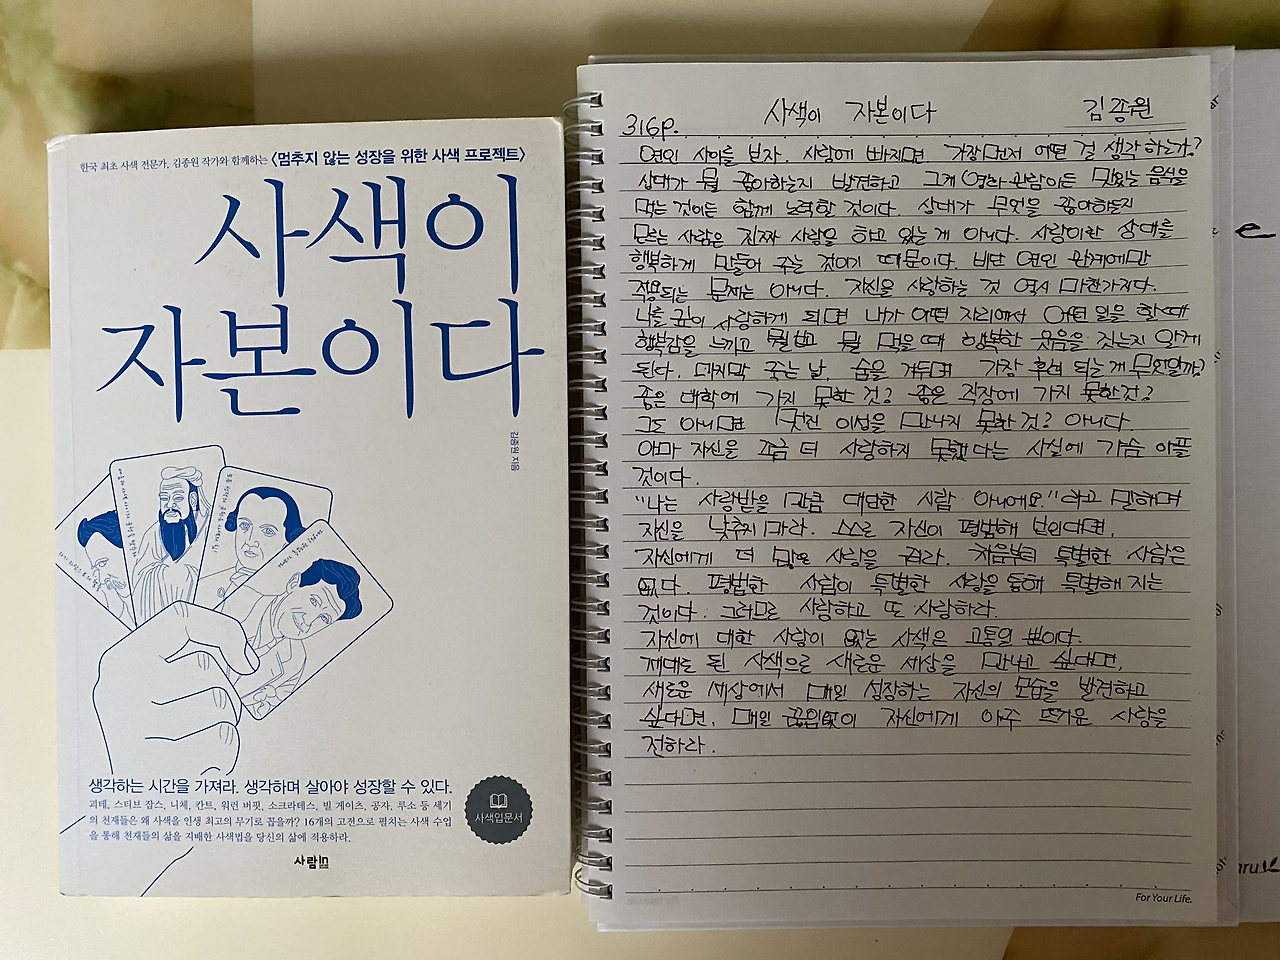 한국 최초 사색 전문가, 김종원 작가와 함께하는 〈멈추지 않는 성장을 위한 사색 프로젝트〉
사색이
자본이다
김종원 지음
생각하는 시간을 가져라. 생각하며 살아야 성장할 수 있다.
괴테, 스티브 잡스, 니체, 칸트, 워런 버핏, 소크라테스, 빌 게이츠, 공자, 루소 등 세기
의 천재들은 왜 사색을 인생 최고의 무기로 꼽을까? 16개의 고전으로 펼치는 사색 수업
을 통해 천재들의 삶을 지배한 사색법을 당신의 삶에 적용하라.
사색입문서
사람in
사색이 자본이다 김종원
316p.
연인 사이를 보자. 사랑에 빠지면 가장 먼저 어떤 걸 생각하는가?
상대가 뭘 좋아하는지 발견하고 그게 영화 관람이든 맛있는 음식을
먹는 것이든 함께 노력할 것이다. 상대가 무엇을 좋아하는지
모르는 사람은 진짜 사랑을 하고 있는 게 아니다. 사랑이란 상대를
행복하게 만들어 주는 것이기 때문이다. 비단 연인 관계에만
적용되는 문제는 아니다. 자신을 사랑하는 것 역시 마찬가지다.
나를 깊이 사랑하게 되면 내가 어떤 자리에서 어떤 일을 할 때
행복감을 느끼고 뭘 보고 뭘 먹을 때 행복한 웃음을 짓는지 알게
된다. 마지막 죽는 날, 숨을 거두며 가장 후회 되는 게 무엇일까?
좋은 대학에 가지 못한 것? 좋은 직장에 가지 못한 것?
그도 아니면 멋진 이성을 만나지 못한 것? 아니다.
아마 자신을 조금 더 사랑하지 못했다는 사실에 가슴 아플
것이다.
"나는 사랑받을 만큼 대단한 사람 아니에요." 라고 말하며
자신을 낮추지 마라. 스스로 자신이 평범해 보인다면,
자신에게 더 많은 사랑을 줘라. 처음부터 특별한 사람은
없다. 평범한 사람이 특별한 사랑을 통해 특별해 지는
것이다. 그러므로 사랑하고 또 사랑하라.
자신에 대한 사랑이 없는 사색은 고통일 뿐이다.
제대로 된 사색으로 새로운 세상을 만나고 싶다면,
새로운 세상에서 매일 성장하는 자신의 모습을 발견하고
싶다면, 매일 끊임없이 자신에게 아주 뜨거운 사랑을
전하라.
For Your Life.
e